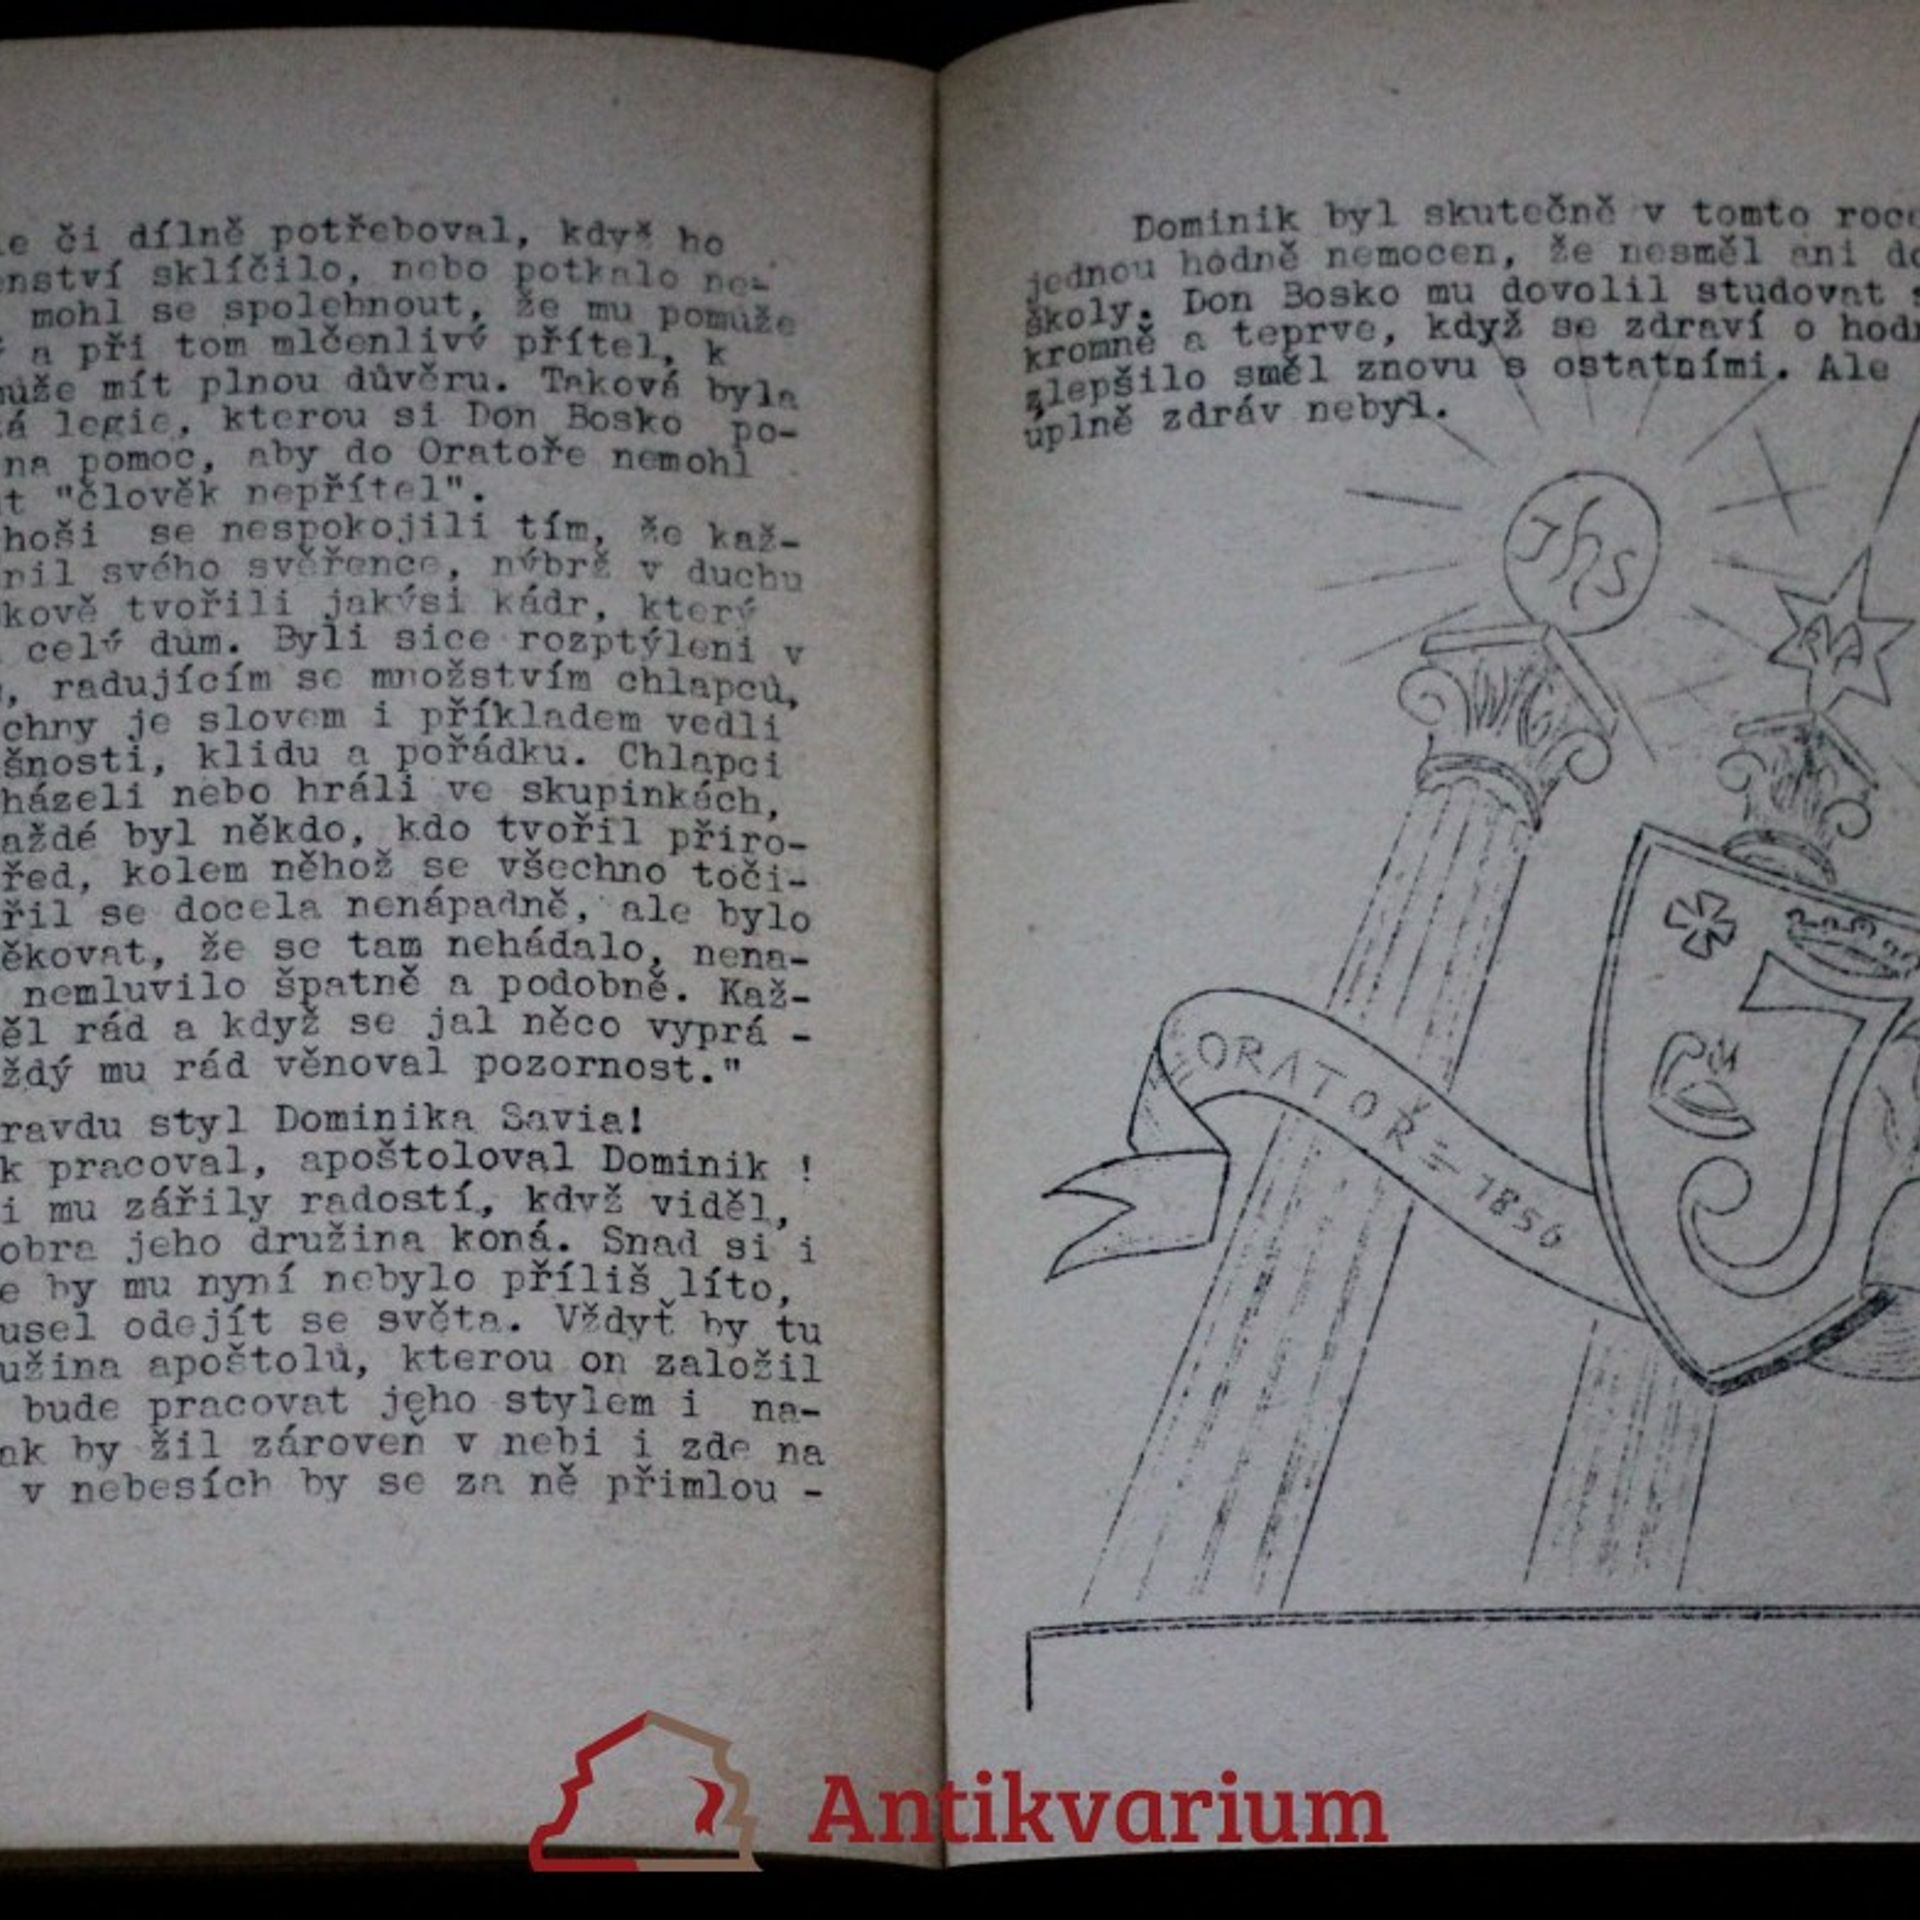 či dílně potřeboval, když ho
enství sklíčilo, nebo potkalo ne-
mohl se spolehnout, že mu pomůže
a při tom mlčenlivý přítel, k
ůže mít plnou důvěru. Taková byla
á legie, kterou si Don Bosko po-
na pomoc, aby do Oratoře nemohl
t "člověk nepřítel".
hoši se nespokojili tím, že kaž-
nil svého svěřence, nýbrž v duchu
kově tvořili jakýsi kádr, který
celý dům. Byli sice rozptýleni v
, radujícím se množstvím chlapců,
chny je slovem i příkladem vedli
šnosti, klidu a pořádku. Chlapci
házeli nebo hráli ve skupinkách,
aždé byl někdo, kdo tvořil přiro-
řed, kolem něhož se všechno toči-
řil se docela nenápadně, ale bylo
ěkovat, že se tam nehádalo, nena-
nemluvilo špatně a podobně. Kaž-
ěl rád a když se jal něco vyprá -
ždý mu rád věnoval pozornost."
ravdu styl Dominika Savia!
k pracoval, apoštoloval Dominik !
i mu zářily radostí, když viděl,
obra jeho družina koná. Snad si i
e by mu nyní nebylo příliš líto,
usel odejít se světa. Vždyť by tu
užina apoštolů, kterou on založil
bude pracovat jeho stylem i na-
ak by žil zároveň v nebi i zde na
v nebesích by se za ně přimlou -
Dominik byl skutečně v tomto roce
jednou hodně nemocen, že nesměl ani do
školy. Don Bosko mu dovolil studovat s
kromně a teprve, když se zdraví o hodn
zlepšilo směl znovu s ostatními. Ale
úplně zdráv nebyl.
Jhs
MA
J
=ORATOŘ=1856
Antikvarium